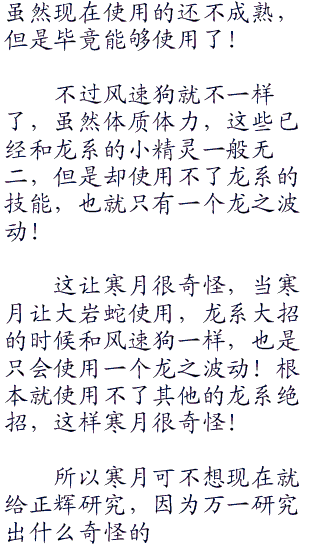 虽然现在使用的还不成熟，
但是毕竟能够使用了！
不过风速狗就不一样
了，虽然体质体力，这些已
经和龙系的小精灵一般无
二，但是却使用不了龙系的
技能，也就只有一个龙之波
动！
这让寒月很奇怪，当寒
月让大岩蛇使用，龙系大招
的时候和风速狗一样，也是
只会使用一个龙之波动！根
本就使用不了其他的龙系绝
招，这样寒月很奇怪！
所以寒月可不想现在就
给正辉研究，因为万一研究
出什么奇怪的